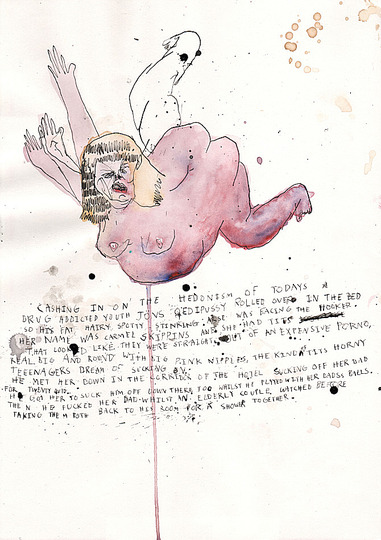 CASHING IN ON THE HEDONISM OF TODAYS
DRUG ADDICTED YOUTH JONS OEDIPUSSY ROLLED OVER IN THE BED
SO HIS FAT HAIRY, SPOTTY STINKING ARSE WAS FACING THE HOOKER.
HER NAME WAS CARMEL SKIPPINS AND SHE HAD TITS
THAT LOOKED LIKE THEY WERE STRAIGHT OUT OF AN EXPENSIVE PORNO,
REAL BIG AND ROUND WITH BIG PINK NIPPLES, THE KIND HORNY
TEEENAGERS DREAM OF SUCKING ON.
HE MET HER DOWN IN THE CORRIDOR OF THE HOTEL SUCKING OFF HER DAD
FOR TWENTY QUID.
HE GOT HER TO SUCK HIM OFF DOWN THERE TOO WHILST HE PLAYED WITH HER DADS BALLS.
THEN HE FUCKED HER DAD WHILST AN ELDERLY COUPLE WATCHED BEFORE
TAKING THEM BOTH BACK TO HIS ROOM FOR A SHOWER TOGETHER.